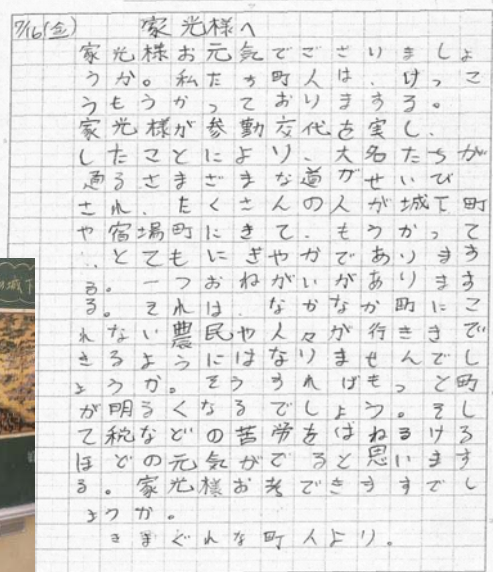 7/16(金) 家光様へ
家光様お元気でござりましょ
うか。私たち町人は、けっこ
うもうかっております る。
家光様が参勤交代を実し、
したことにより、大名たちが
通るさまざまな道がせいび
され、たくさんの人が城下町
や宿場町にきて、もうかって
、とてもにぎやかであります
る。一つおねがいがあります
る。それは、なかなか町にこ
れない農民や人々が行ききで
きるようにはなりませんでし
ょうか。そうすればもっと町
が明るくなるでしょう。そし
て税などの苦労をはねるける
ほどの元気がでると思います
る。家光様お考できますでし
ょうか。
きまぐれな町人より。
城下